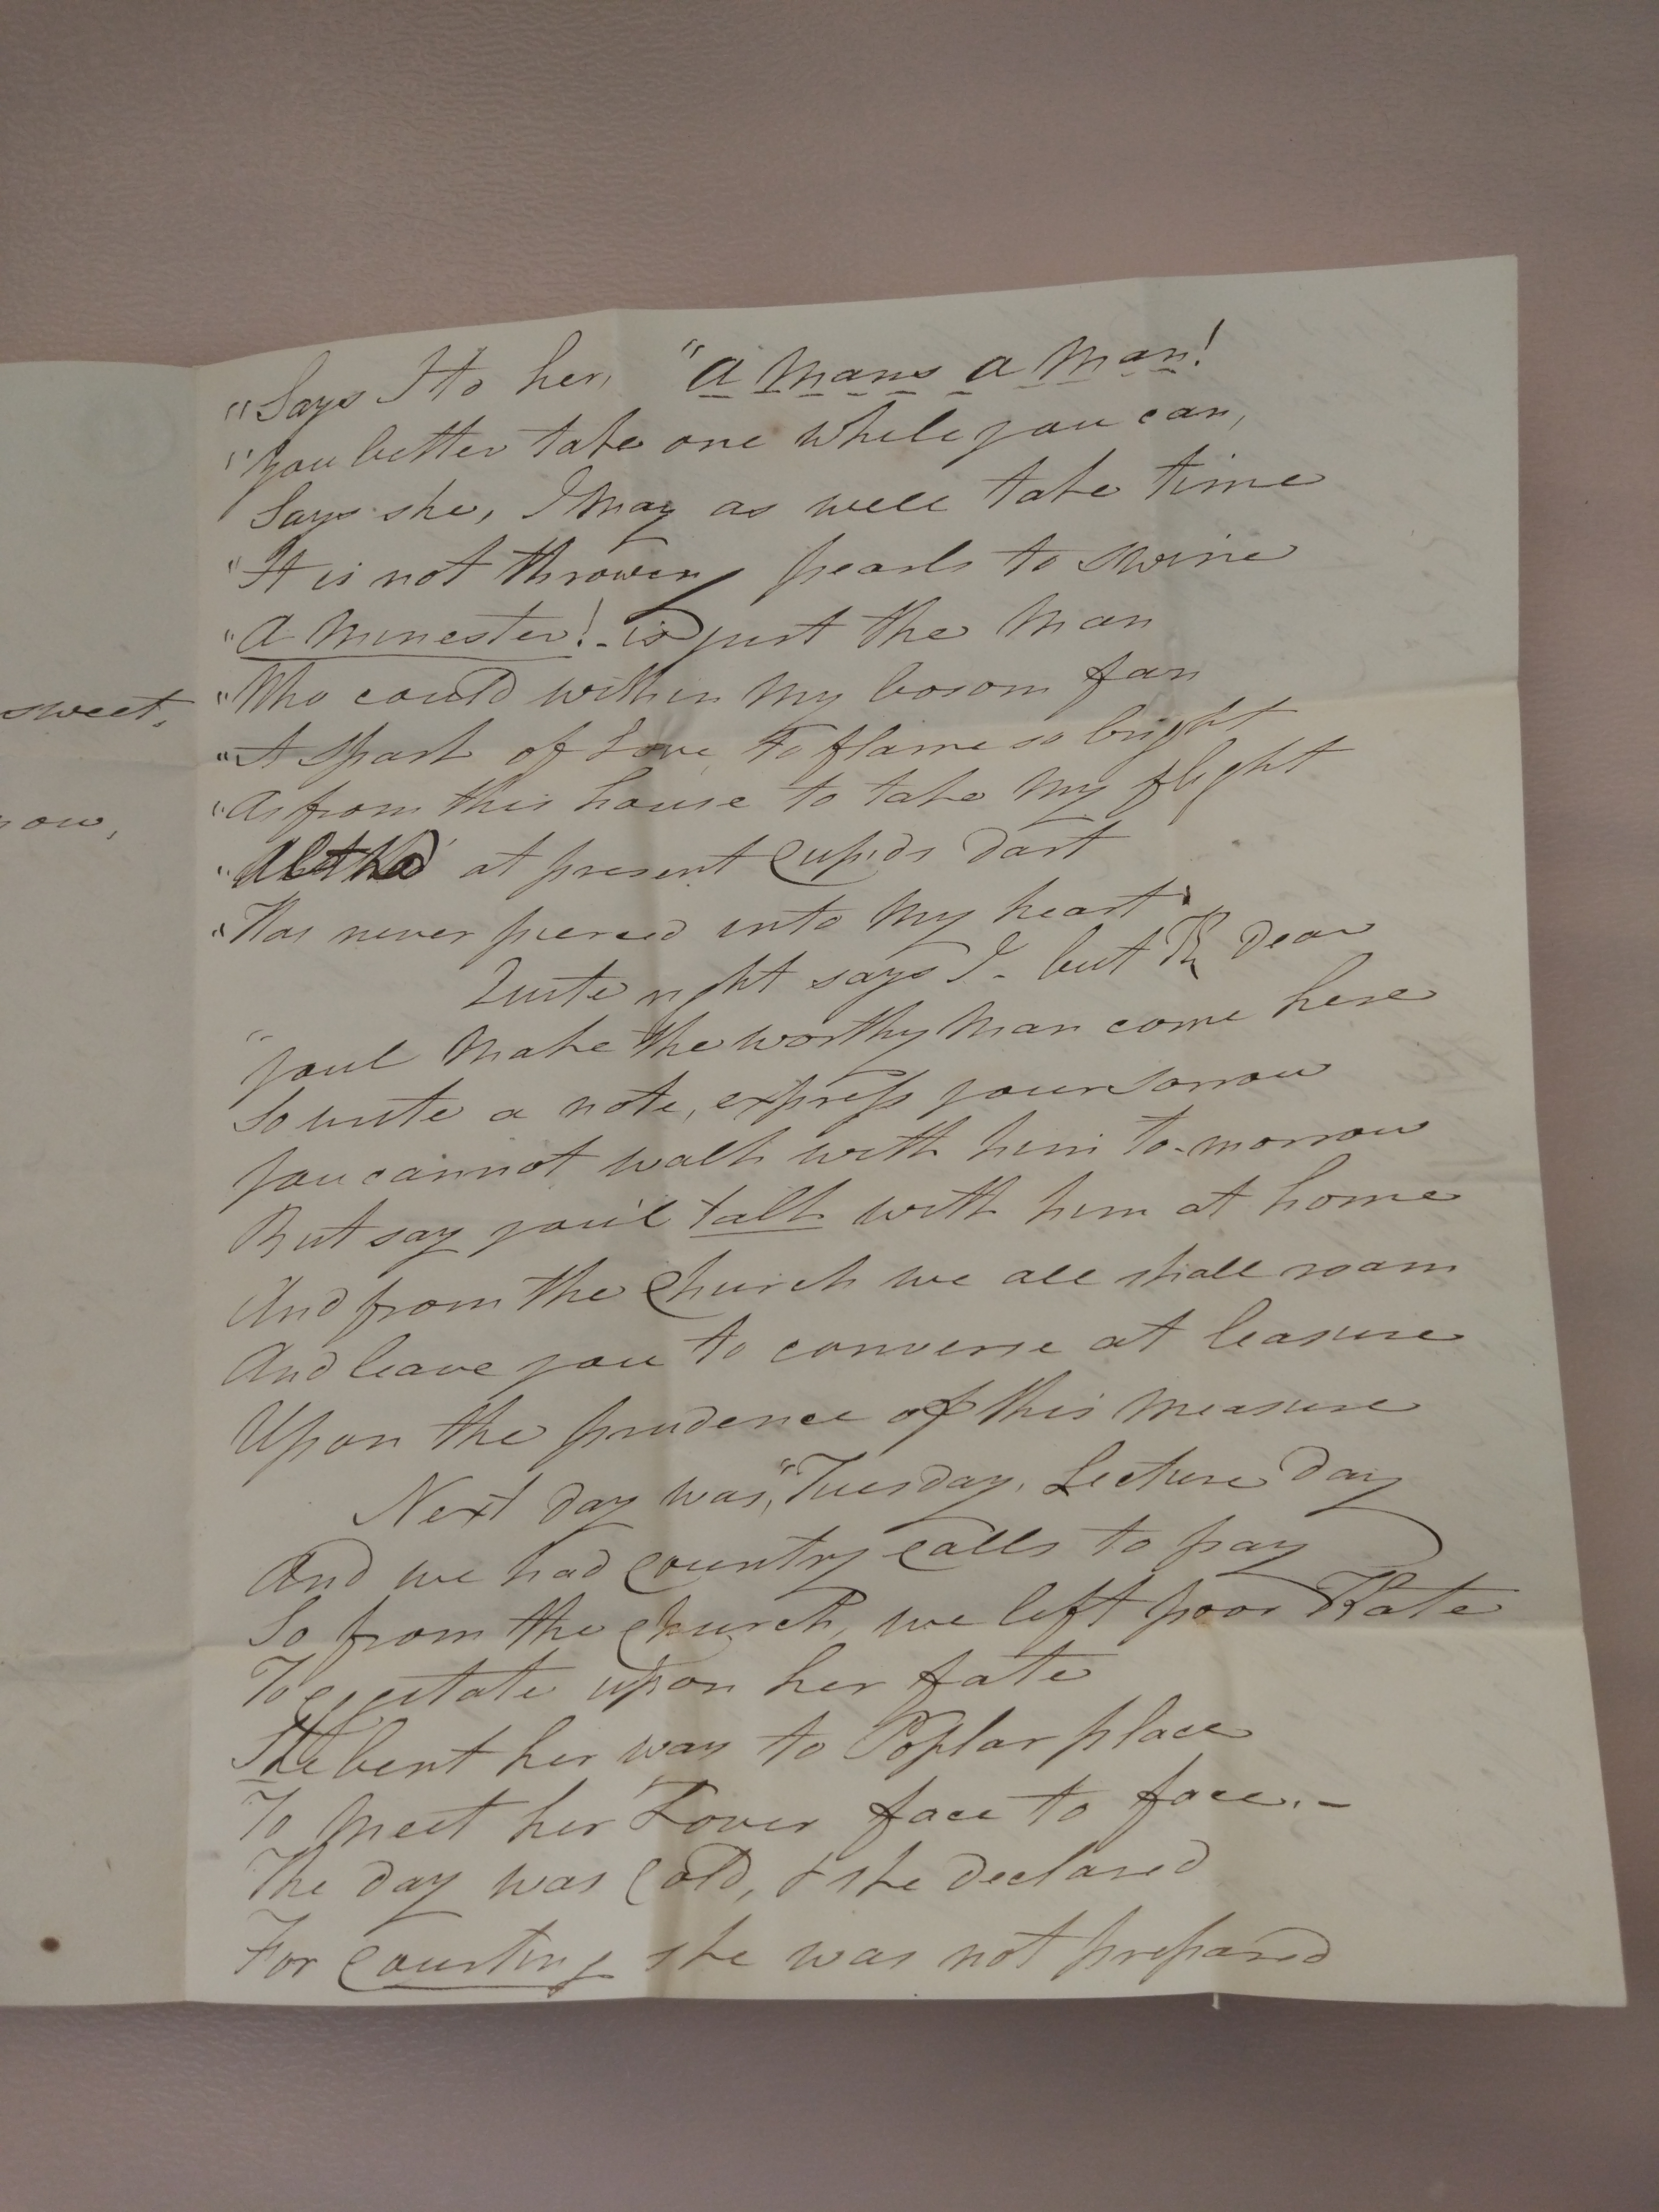 sweet,
now,
"Says I to her, "A mans a man!
"You better take one while you can,
Says she, I may as well take time
"It is not throwing pearls to swine
"A minester! - is just the man
"Who could within my bosom fan
"A spark of Love, to flame so bright
"As from this house to take my flight
"Altho' at present Cupids dart
"Has never pierced into my heart"
Quite right says I - but K dear
"youl make the worthy man come here
So write a note, express your sorrow
You cannot walk with him to-morrow
But say you'l talk with him at home
And from the Church we all shall roam
And leave you to converse at leasure
Upon the prudence of this measure
Next day was, "Tuesday, Lecture day
And we had Country Calls to pay
So from the Church, we left poor Kate
To agitate upon her fate
She bent her way to Poplar place
To meet her Lover face to face. -
The day was Cold, & she declared
For Courting she was not prepared